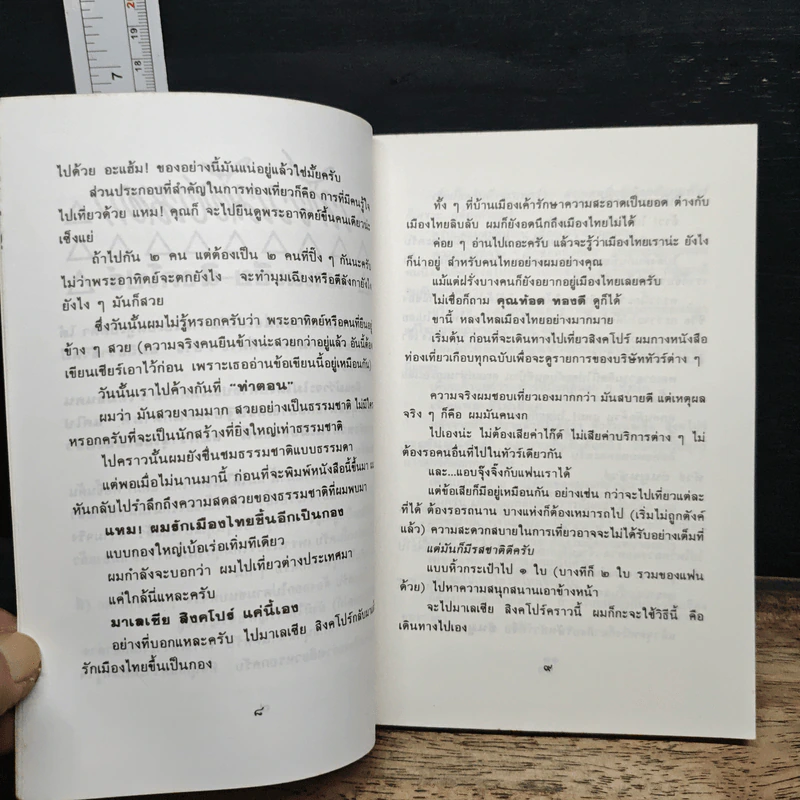 7
18
19
20
ไปด้วย อะแฮ้ม! ของอย่างนี้มันแน่อยู่แล้วใช่มั้ยครับ
ส่วนประกอบที่สำคัญในการท่องเที่ยวก็คือ การที่มีคนรู้ใจ
ไปเที่ยวด้วย แหม! คุณก็ จะไปยืนดูพระอาทิตย์ขึ้นคนเดียวน่ะ
เซ็งแย่
ถ้าไปกัน ๒ คน แต่ต้องเป็น ๒ คนที่ปิ๊ง ๆ กันนะครับ
ไม่ว่าพระอาทิตย์จะตกยังไง จะทำมุมเฉียงหรือตีลังกายังไง
ยังไง ๆ มันก็สวย
ซึ่งวันนั้นผมไม่รู้หรอกครับว่า พระอาทิตย์หรือคนที่ยืนอยู่
ข้าง ๆ สวย (ความจริงคนยืนข้างน่ะสวยกว่าอยู่แล้ว อันนี้ต้อง
เขียนเชียร์เอาไว้ก่อน เพราะเธออ่านข้อเขียนนี้อยู่เหมือนกัน)
วันนั้นเราไปค้างกันที่ "ท่าตอน"
ผมว่า มันสวยงามมาก สวยอย่างเป็นธรรมชาติ ไม่มีใคร
หรอกครับที่จะเป็นนักสร้างที่ยิ่งใหญ่เท่าธรรมชาติ
ไปคราวนั้นผมยังชื่นชมธรรมชาติแบบธรรมดา
แต่พอเมื่อไม่นานมานี้ ก่อนที่จะพิมพ์หนังสือนี้ขึ้นมา
หันกลับไปรำลึกถึงความสดสวยของธรรมชาติที่ผมพบมา
แหม! ผมรักเมืองไทยขึ้นอีกเป็นกอง
แบบกองใหญ่เบ้อเร่อเทิ่มทีเดียว
ผมกำลังจะบอกว่า ผมไปเที่ยวต่างประเทศมา
แค่ใกล้นี่แหละครับ
มาเลเซีย สิงคโปร์ แค่นี้เอง
อย่างที่บอกแหละครับ ไปมาเลเซีย สิงคโปร์กลับมา
รักเมืองไทยขึ้นเป็นกอง
๘
ทั้ง ๆ ที่บ้านเมืองเค้ารักษาความสะอาดเป็นยอด ต่างกับ
เมืองไทยลิบลับ ผมก็ยังอดนึกถึงเมืองไทยไม่ได้
ค่อย ๆ อ่านไปเถอะครับ แล้วจะรู้ว่าเมืองไทยเราน่ะ ยังไง
ก็น่าอยู่ สำหรับคนไทยอย่างผมอย่างคุณ
แม้แต่ฝรั่งบางคนก็ยังอยากอยู่เมืองไทยเลยครับ
ไม่เชื่อก็ถาม คุณท้อด ทองดี ดูก็ได้
ขานี้ หลงใหลเมืองไทยอย่างมากมาย
เริ่มต้น ก่อนที่จะเดินทางไปเที่ยวสิงคโปร์ ผมกางหนังสือ
ท่องเที่ยวเกือบทุกฉบับเพื่อจะดูรายการของบริษัททัวร์ต่าง ๆ
ความจริงผมชอบเที่ยวเองมากกว่า มันสบายดี แต่เหตุผล
จริง ๆ ก็คือ ผมมันคนงก
ไปเองน่ะ ไม่ต้องเสียค่าไก๊ด์ ไม่เสียค่าบริการต่าง ๆ ไม่
ต้องรอคนอื่นที่ไปในทัวร์เดียวกัน
และ...แอบจุ๊งจิ๊งกับแฟนเราได้
แต่ข้อเสียก็มีอยู่เหมือนกัน อย่างเช่น กว่าจะไปเที่ยวแต่ละ
ที่ได้ ต้องรอรถนาน บางแห่งก็ต้องเหมารถไป (เริ่มไม่ถูกตังค์
แล้ว) ความสะดวกสบายในการเที่ยวอาจจะไม่ได้รับอย่างเต็มที่
แต่มันก็มีรสชาติดีครับ
แบบหิ้วกระเป๋าไป ๑ ใบ (บางทีก็ ๒ ใบ รวมของแฟน
ด้วย) ไปหาความสนุกสนานเอาข้างหน้า
จะไปมาเลเซีย สิงคโปร์คราวนี้ ผมก็กะจะใช้วิธีนี้ คือ
เดินทางไปเอง
๙